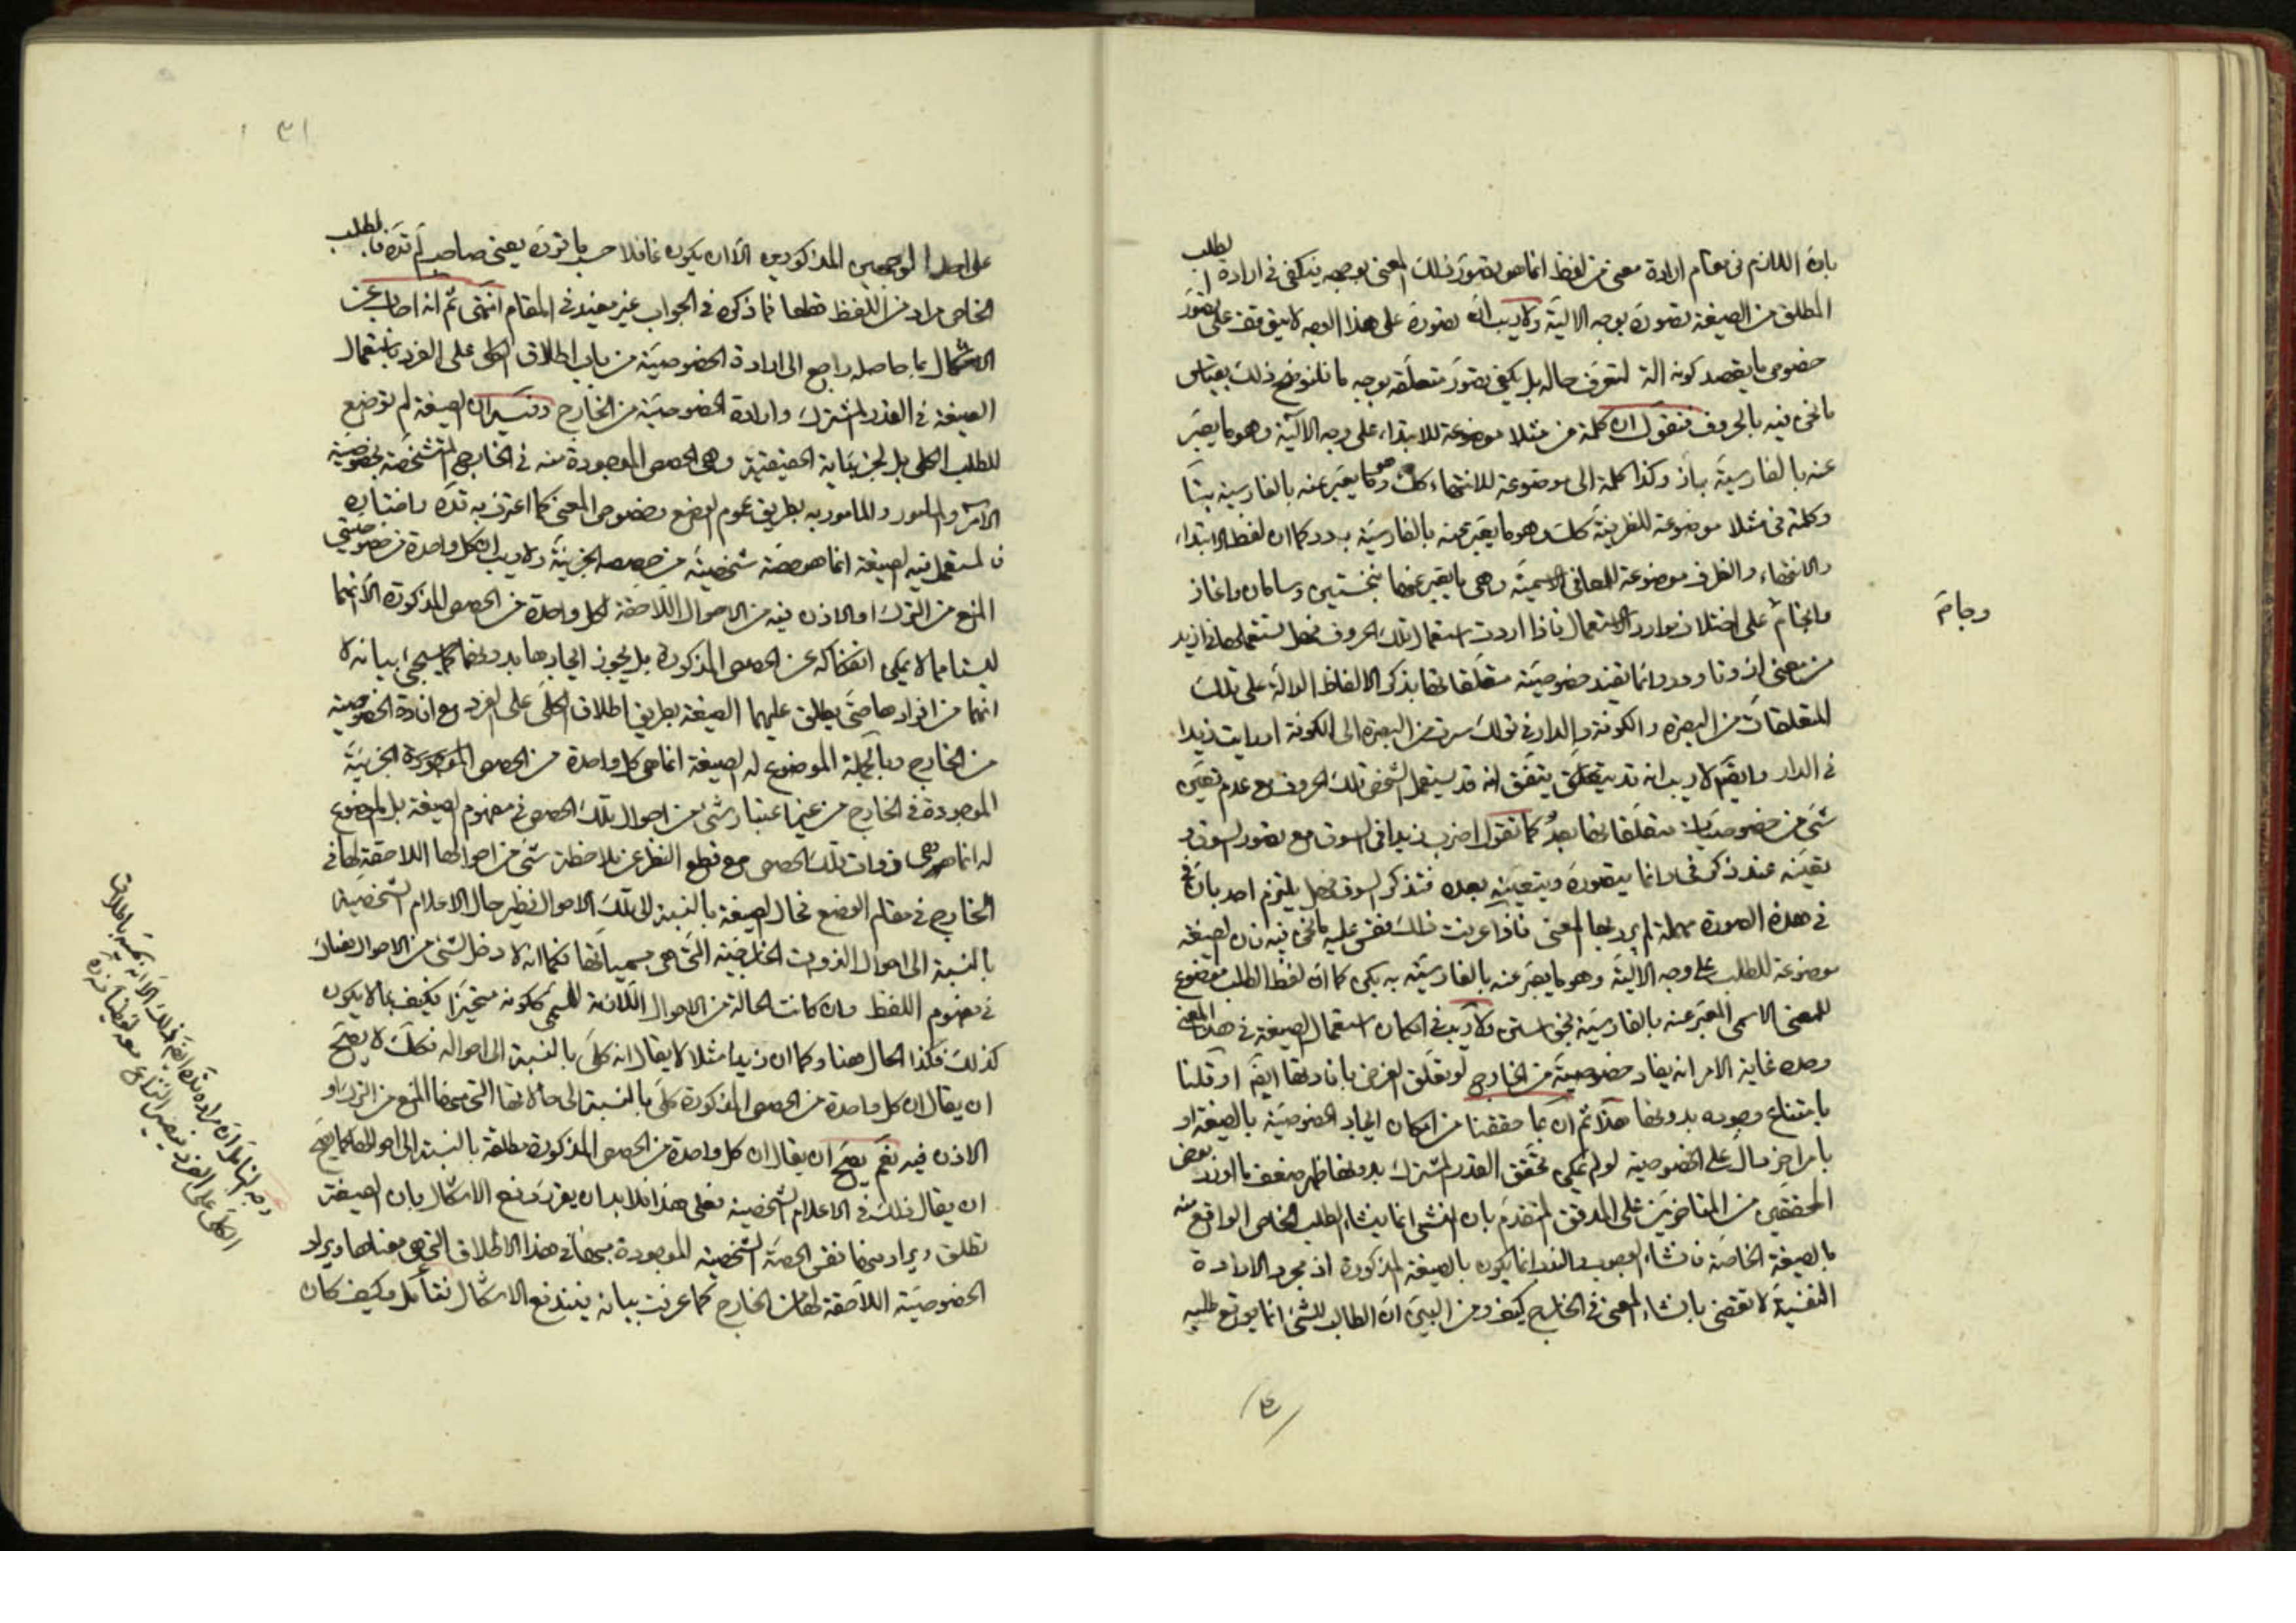 بان اللازم فى مقام ارادة معنى من لفظ انما هو تصور ذلك المعنى بوجه فيكفى فى ارادة الطلب
المطلق من الصيغة تصوره بوجه الآلية ولا ريب ان تصوره على هذا الوجه لا يتوقف على تصور
خصوص ما يقصد كونه آلة لتعرف حاله بل يكفى تصور متعلقه بوجه ما فلنوضح ذلك بقياس
ما نحن فيه بالحروف فنقول ان كلمة من مثلا موضوعة للابتداء على وجه الآلية وهو ما يعبر
عنه بالفارسية باز وكذا كلمة الى موضوعة للانتهاء كك وهو ما يعبر عنه بالفارسية بتا
وكلمة فى مثلا موضوعة للظرفية كك وهو ما يعبر عنه بالفارسية بدر كما ان لفظ الابتداء
والانتهاء والظرف موضوعة للمعانى الاسمية وهى ما يعبر عنها بنخستين وسامان واغاز
وانجام على اختلاف موارد الاستعمال فاذا اردت استعمال تلك الحروف فهل تستعملها فى ازيد
من معنى از وتا ودر وانما تفيد خصوصية متعلقاتها بذكر الالفاظ الدالة على تلك
المتعلقات من البصرة والكوفة والدار فى قولك سرت من البصرة الى الكوفة او رايت زيدا
فى الدار وايضا لا ريب انه قد يتفق انه قد يستعمل الشخص تلك الحروف مع عدم تعين
شىء من خصوصيات متعلقاتها بعد كما تقول اضرب زيدا فى السوق مع تصور السوق و
تعينه عند ذكر فى وانما يتصوره ويتعينه بعده فتذكر السوق فهل يلتزم احد بان فى
فى هذه الصورة مهملة لم يرد بها المعنى فاذا عرفت ذلك فقس عليه ما نحن فيه فان الصيغة
موضوعة للطلب على وجه الآلية وهو ما يعبر عنه بالفارسية به بكن كما ان لفظ الطلب موضوع
للمعنى الاسمى المعبر عنه بالفارسية بخواستن ولا ريب فى امكان استعمال الصيغة فى هذا المعنى
وحده غاية الامر انه يفاد خصوصية من الخارج لو تعلق الغرض بافادتها ايضا او قلنا
بامتناع وجوده بدونها هذا ثم ان بما حققنا من امكان ايجاد الخصوصية بالصيغة او
بامر اخر دال على الخصوصية لو لم يمكن تحقق القدر المشترك بدونها ظهر ضعف ما اورد بعض
المحققين من المتاخرين على المدقق المتقدم بان المنشئ انما ينشاء الطلب الخاص الواقع منه
بالصيغة الخاصة فانشاء الوجوب والندب انما يكون بالصيغة المذكورة اذ مجرد الارادة
النفسية لا تقضى بانشاء المعنى فى الخارج كيف ومن البين ان الطالب للشىء انما يوقع طلبه
وجام
على احد الوجهين المذكورين الا ان يكون غافلا حسب ما قرره يعنى صاحب لم قدره فالطلب
الخاص مراد من اللفظ قطعا فما ذكره فى الجواب غير مفيد فى المقام انتهى ثم انه اجاب عن
الاشكال بما حاصله راجع الى ارادة الخصوصية من باب اطلاق الكلى على الفرد باستعمال
الصيغة فى القدر المشترك وارادة الخصوصية من الخارج وفيه ان الصيغة لم توضع
للطلب الكلى بل لجزئياته الحقيقية وهى الحصص الموجودة منه فى الخارج المتشخصة بخصوصية
الآمر والمامور والمامور به بطريق عموم الوضع وخصوص المعنى كما اعترف به قده واختاره
فالمستعمل فيه الصيغة انما هو حصة شخصية من حصصه الجزئية ولا ريب ان كل واحدة من خصوصيتى
المنع من الترك او الاذن فيه من الاحوال اللاحقة لكل واحدة من الحصص المذكورة الا انهما
ليستا مما لا يمكن انفكاكه عن الحصص المذكورة بل يجوز ايجادها بدونهما كما سيجئ بيانه لا
انهما من افرادها حتى يطلق عليهما الصيغة بطريق اطلاق الكلى على الفرد مع افادة الخصوصية
من الخارج وبالجملة الموضوع له الصيغة انما هى كل واحدة من الحصص الجزئية
الموجودة فى الخارج من غير اعتبار شىء من احوال تلك الحصص فى مفهوم الصيغة بل الموضوع
له انما هى ذوات تلك الحصص مع قطع النظر عن ملاحظة شىء من احوالها اللاحقة لها فى
الخارج فى مقام الوضع فحال الصيغة بالنسبة الى تلك الاحوال نظير حال الاعلام الشخصية
بالنسبة الى احوال الذوات الخارجية التى هى مسمياتها فكما انه لا دخل لشىء من الاحوال هناك
فى مفهوم اللفظ وان كانت الحالة من الاحوال اللازمة للمسمى ككونه متحيزا فكيف بما لا يكون
كذلك فكذا الحال هنا وكما ان زيدا مثلا لا يقال انه كلى بالنسبة الى احواله فكك لا يصح
ان يقال ان كل واحدة من الحصص المذكورة كلى بالنسبة الى حالاتها التى منها المنع من الترك او
الاذن فيه نعم يصح ان يقال ان كل واحدة من الحصص المذكورة مطلقة بالنسبة الى احوالها كما يصح
ان يقال ذلك فى الاعلام الشخصية فعلى هذا فلا بد ان يقرر دفع الاشكال بان الصيغة
تطلق ويراد منها نفس الحصة الشخصية الموجودة بها فى هذا الاطلاق التى هى معناها ويراد
الخصوصية اللاحقة لها من الخارج كما عرفت بيانه فيندفع الاشكال فتامل وكيف كان